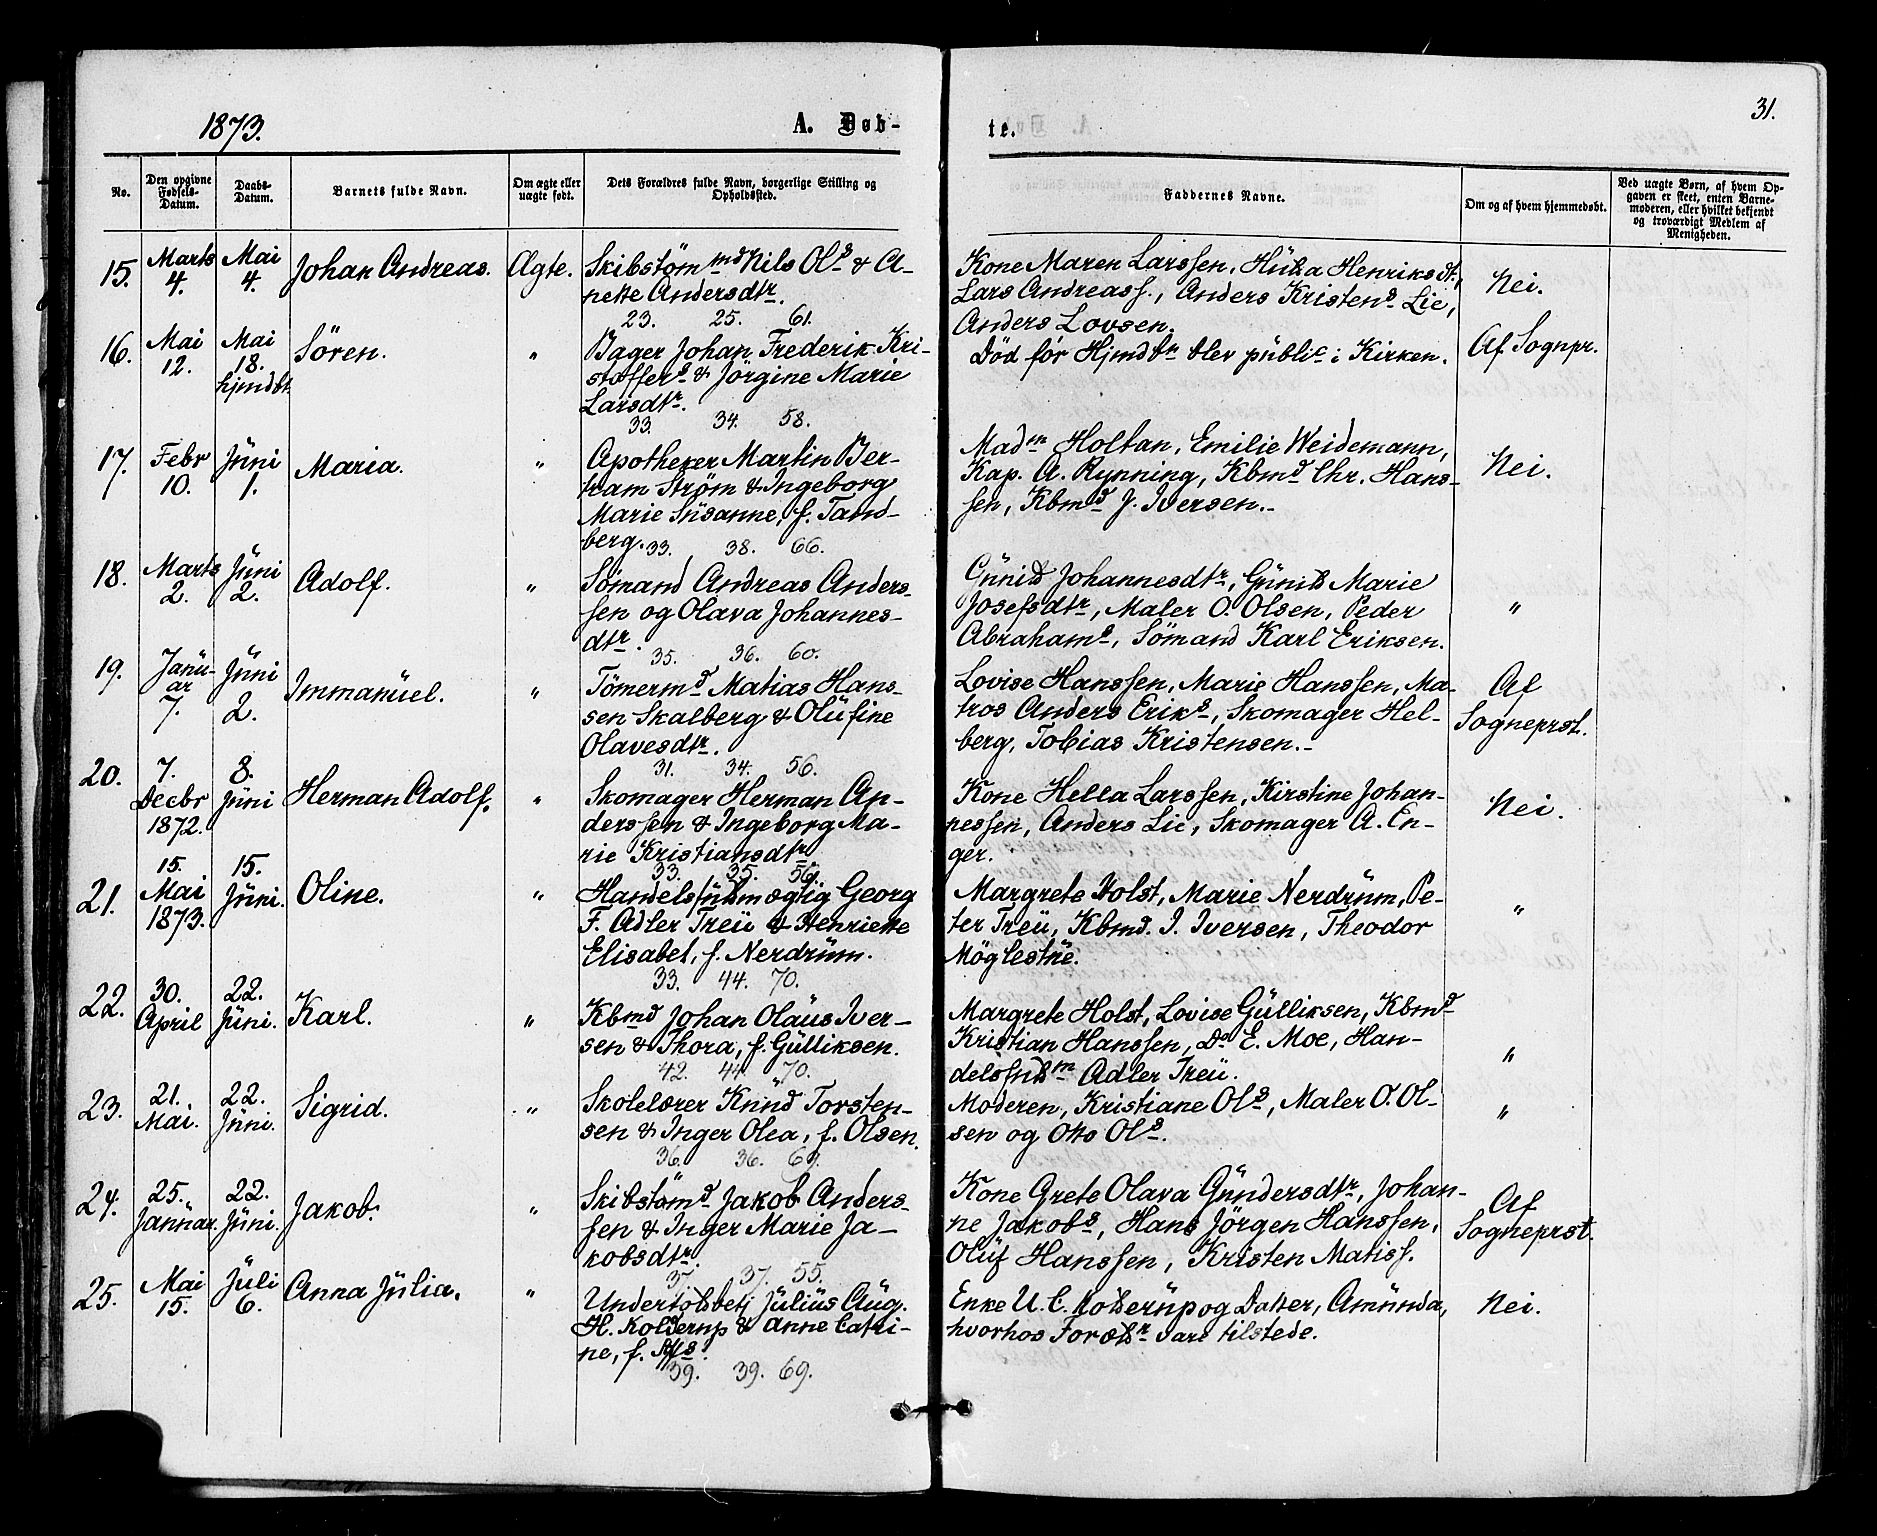 1873.
A. Døb-
te.
31.
No.
Den opgivne Fødsels-Datum.
Daabs-Datum.
Barnets fulde Navn.
Om ægte eller uægte født.
Dets Forældres fulde Navn, borgerlige Stilling og Opholdssted.
Faddernes Navne.
Om og af hvem hjemmedøbt.
Ved uægte Børn, af hvem Opgaven er skeet, enten Barnemoderen, eller hvilket bekjendt og troværdigt Medlem af Menigheden.
15. Marts 4. Mai 4. Johan Andreas. Ægte.
Skibstømmd Nils Ols & A-
nette Andersdtr.
23. 25. 61.
Kone Maren Larssen, Henriksdt,
Lars Andreass., Anders Kristens Lie,
Anders Lovsen.
Nei.
16. Mai 12. Mai 18. hjmdbt. Sören. "
Bager Johan Frederik Kri-
stoffers & Jörgine Marie
Larsdtr.
33. 34. 58.
Död för Hjmdbn blev publie i Kirken.
Af Sognpr.
17. Febr 10. Jüni 1. Maria. "
Apotheker Martin Ber-
tram Ström & Ingeborg
Marie Süsanne, f. Tand-
berg.
33. 38. 66.
Madm Holtan, Emilie Weidemann,
Kap. A. Rynning, Kbmd Chr. Hans-
sen, Kbmd J. Iversen.-
Nei.
18. Marts 2. Jüni 2. Adolf. "
Sömand Andreas Anders-
sen og Olava Johannes-
dtr.
35. 36. 60.
Günild Johannesdtr, Günild Marie
Josefsdtr, Maler O. Olsen, Peder
Abrahams, Sömand Karl Eriksen.
"
19. Janü-
ar 7. Jüni 2. Immanüel. "
Tömermd Matias Hans-
sen Skalberg & Olüfine
Olavesdtr.
31. 34. 56.
Lovise Hanssen, Marie Hanssen, Ma-
tros Anders Eriks, Skomager Hel-
berg, Tobias Kristensen.-
Af
Sogneprst.
20. 7. Decbr 1872. 8. Jüni Herman Adolf. "
Skomager Herman An-
derssen & Ingeborg Ma-
rie Kristiansdtr
33. 35. 56.
Kone Hella Larssen, Kirstine Johan-
nessen, Anders Lie, Skomager A. En-
ger.
Nei.
21. 15. Mai 1873. 15. Jüni. Oline. "
Handelsfüldmægtig Georg
F. Adler Treü & Henriette
Elisabet, f. Nerdrüm.
33. 44. 70.
Margrete Holst, Marie Nerdrüm, Pe-
ter Treü, Kbmd. I. Iversen, Theodor
Möglestüe.
"
22. 30. April 22. Jüni. Karl. "
Kbmd Johan Olaüs Iver-
sen & Thora, f. Gülliksen.
42. 44. 70.
Margrete Holst, Lovise Gülliksen, Kbmd
Kristian Hanssen, Do E. Moe, Han-
delsfuldm Adler Treü.
"
23. 21. Mai. 22. Jüni. Sigrid. "
Skolelærer Knüd Torsten-
sen & Inger Olea, f. Olsen.
36. 36. 69.
Moderen, Kristiane Ols, Maler O. Ol-
sen og Otto Ols.
"
24. 25. Janüar. 22. Jüni. Jakob. "
Skibstömd Jakob Anders-
sen & Inger Marie Ja-
kobsdtr.
37. 37. 55.
Kone Grete Olava Gündersdtr, Johan-
ne Jakobs, Hans Jörgen Hanssen,
Olüf Hanssen, Kristen Matiss.
Af
Sogneprst.
25. Mai 15. Jüli 6. Anna Jülia. "
Undertoldbetj Jülius Aüg.
H. Kolderup & Anne Catri-
ne, f.
39. 39. 69.
Enke U. C. Kolderüp og Datter, Amünda,
hvorhos Forældr vare tilstede.
Nei.